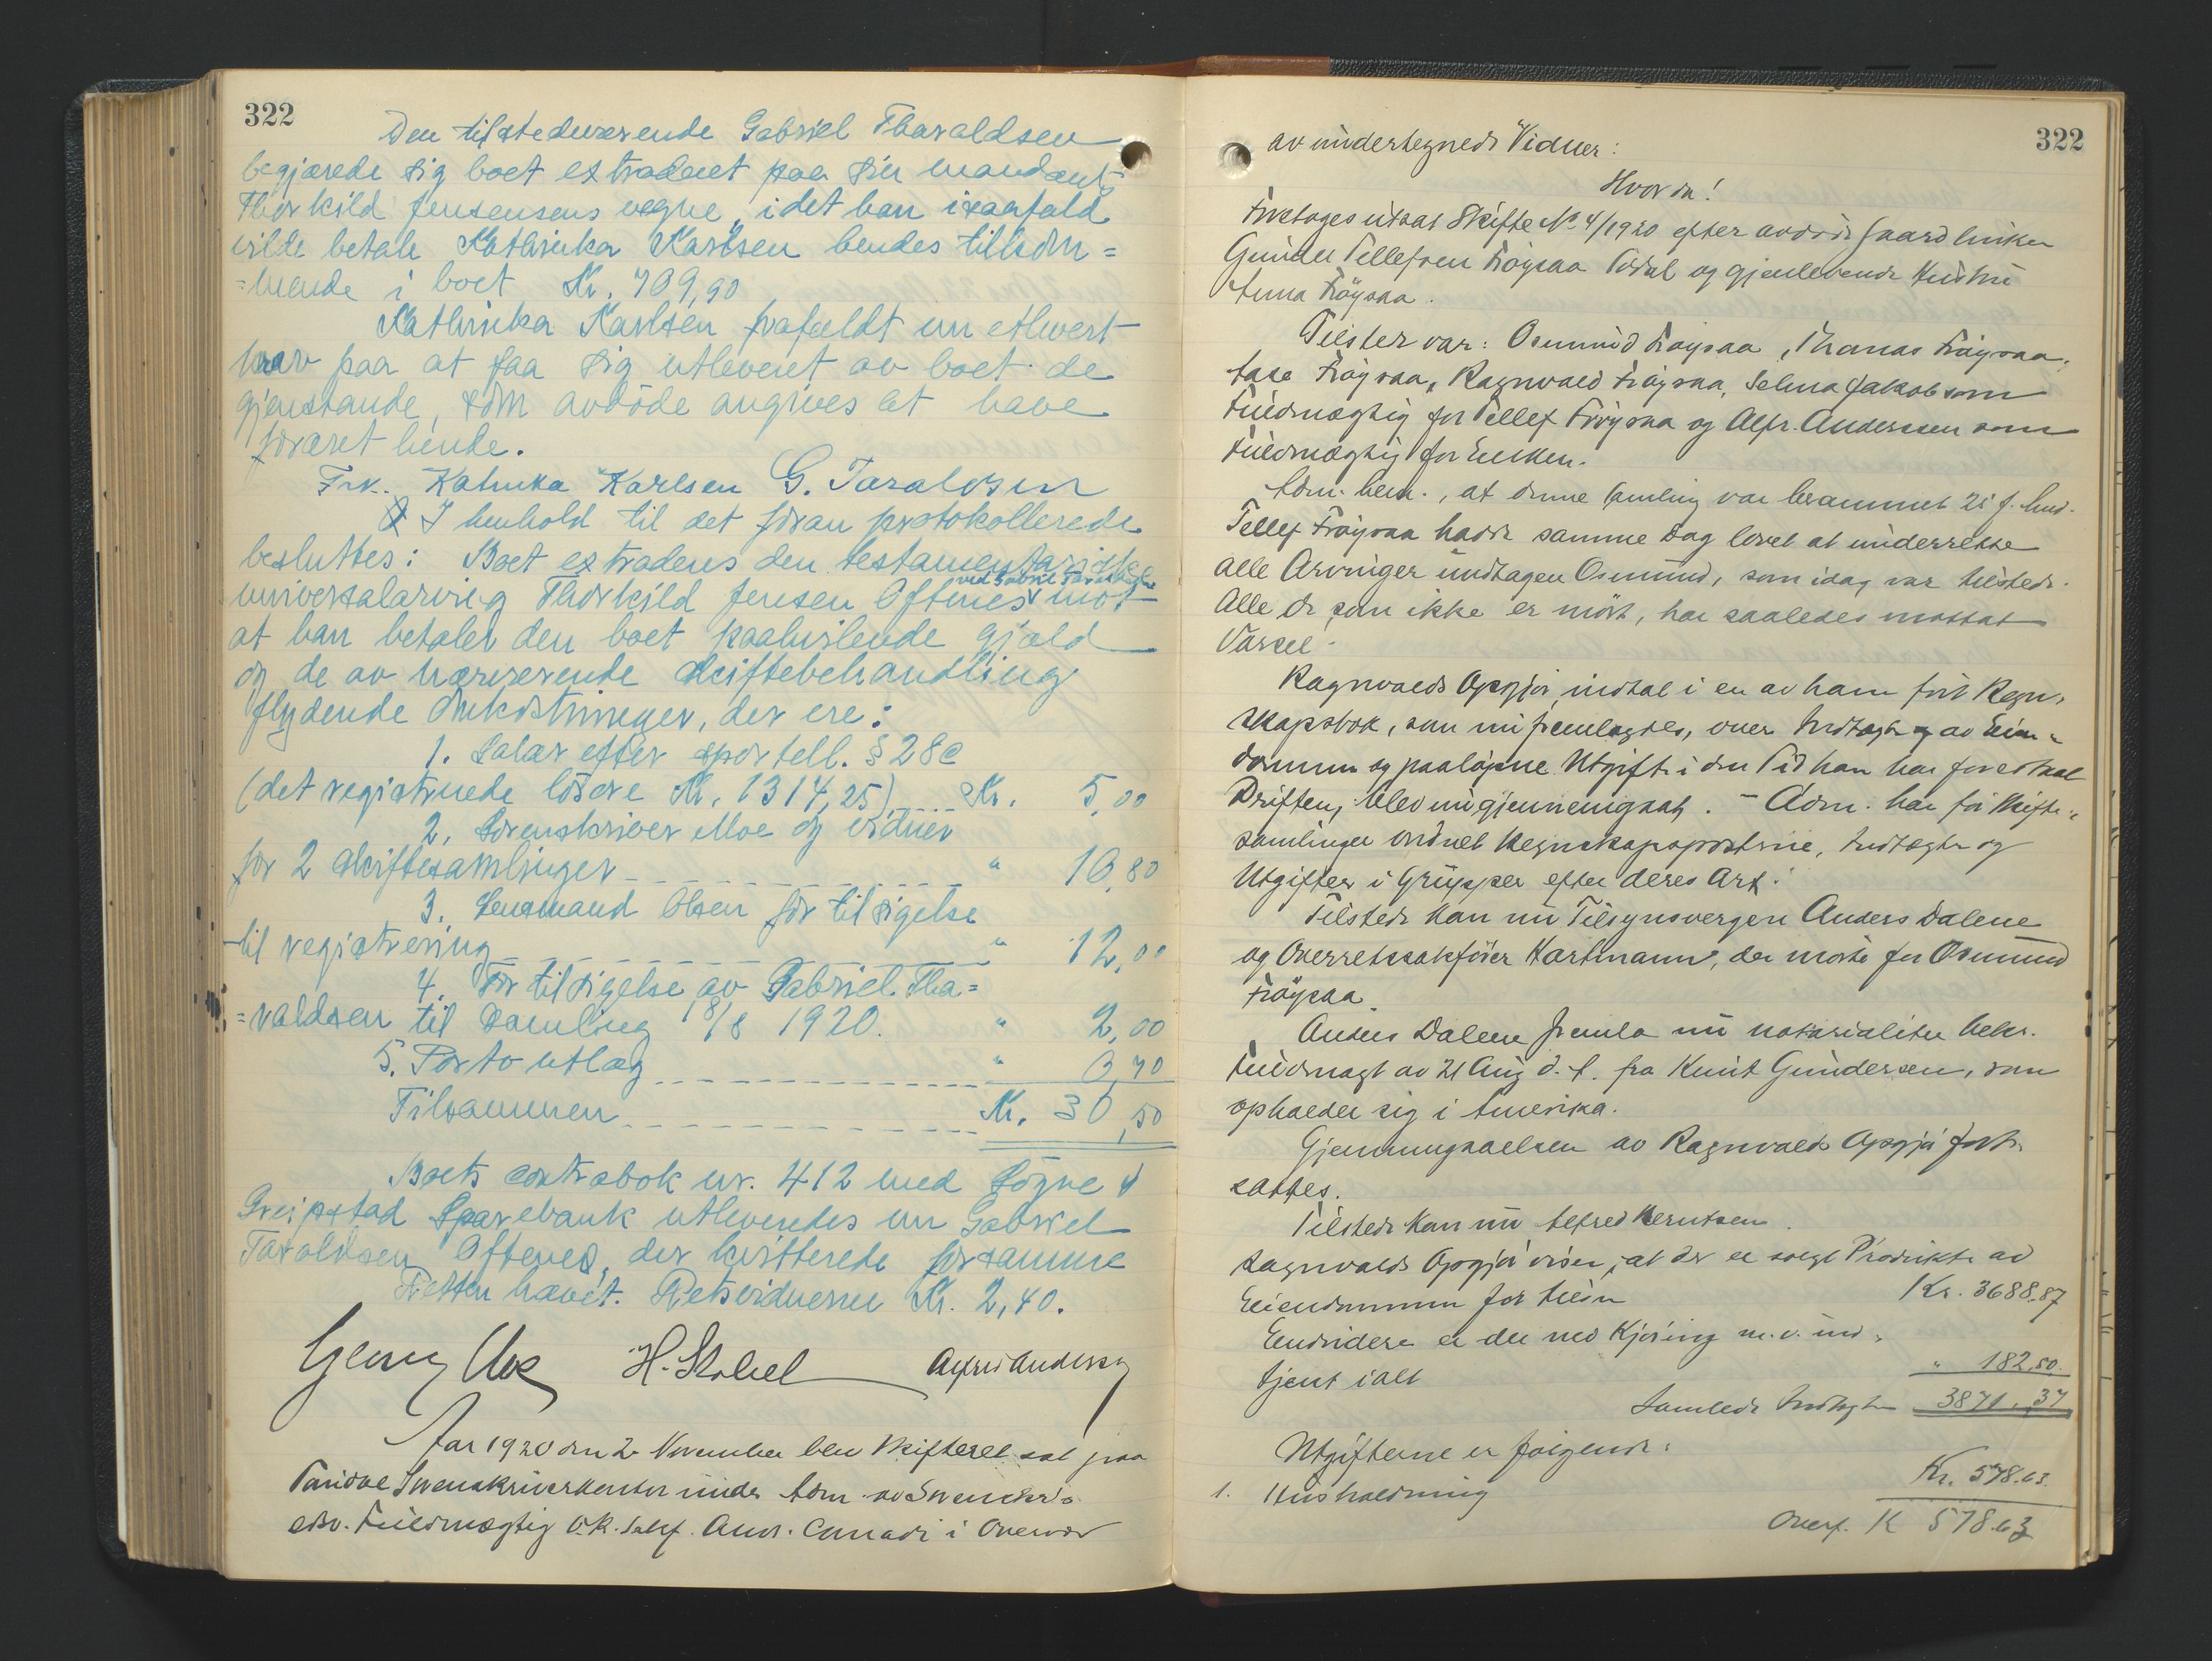 322
Den tilstedeværende Gabriel Tharaldsen
begjærede sig boet extraderet paa sin mandant
Thorkild Jensensens vegne, idet han isaafald
vilde betale Kathinka Karlsen hendes tilkom=
=mende i boet Kr. 709,90
Kathinka Karlsen frafaldt un ethvert
krav paa at faa sig utleveret av boet de
gjenstande, som avdöde angives at have
foræret hende.
Frk. Katinka Karlsen G. Taraldsen
I henhold til det foran protokollerede
besluttes: Boet extraderes den testamentariske
universalarving Thorkild Jensen Oftenes ved Gabriel Taraldsen mot
at han betaler den boet paahvilende gjæld
og de av nærværende skiftebehandling
flydende omkostninger, der ere:
1. Salær efter sportell. § 28 c
(det registrerede lösöre Kr. 1314,25) Kr. 5,00
2. Sorenskriver Moe og vidner
for 2 skiftesamlinger " 10,80
3. Lensmand Olsen for tilsigelse
til registrering " 12,00
4. For tilsigelse av Gabriel Tha=
=raldsen til samling 18/8 1920. " 2,00
5. Porto utlæg " 0,70
Tilsammen Kr. 30,50
Boets contrabok nr. 412 med Sögne &
Greipstad Sparebank utleveredes nu Gabriel
Taraldsen Oftenes, der kvitterede for samme
Retten hævet. Retsvidnerne Kr. 2,40.
Georg Moe H. Stabel Alfred Andersen
Aar 1920 den 2 November blev Skifteret sat paa
Torridal Sorenskriverkontor under Adm. av Sorenskr.s
edsv. Fuldmægtig O.R. Sakf. Conradi i Overvær
322
av undertegnede Vidner:
Hvorda!
Foretoges utsat Skifte No 4/1920 efter avdöde Gaardbruker
Gunder Tellefsen Fröysaa Tördal og gjenlevende Hustru
Anna Fröysaa.
Tilstede var: Osmund Fröysaa, Thomas Fröysaa,
Aase Fröysaa, Ragnvald Fröysaa, Selma Jakobsom
Fuldmægtig for Tellef Fröysaa og Alfr. Anderssen som
Fuldmægtig for Enken.
Adm. bem., at denne Samling var berammet 25 f. Md.
Tellef Fröysaa hadde samme Dag lovet at underrette
alle Arvinger undtagen Osmund, som idag var tilstede.
Alle de som ikke er mött, har saaledes mottat
Varsel.
Ragnvalds Opgjör, indtat i en av ham fört Regn=
skapsbok, som nu fremlagdes, over Indtægter av Eien=
dommen og paalöpne Utgifter i den Tid han har forestaat
Driften, blev nu gjennemgaat. - Adm. har för Skifte=
samlingen ordnet Regnskapsposterne, Indtægter og
Utgifter i Grupper efter deres Art.
Tilstede kom nu Tilsynsvergen Anders Dalene
og Overretssakförer Hartmann, der mötte for Osmund
Fröysaa.
Anders Dalene fremla nu notarialiter bekr.
Fuldmagt av 21 Aug d. A. fra Knut Gundersen, som
opholder sig i Amerika.
Gjennemgaaelsen av Ragnvalds Opgjör fort=
sattes.
Tilstede kom nu Alfred Berntsen.
Ragnvalds Opgjör viser, at der er solgt Produkter av
Eiendommen for tilsm Kr. 3688.87
Endvidere er der ved Kjöring m.v. ind=
tjent ialt " 182.50.
Samlede Indtægter 3871.37
Utgifterne er fölgende:
1. Husholdning Kr. 578.63.
Overf. K 578.63